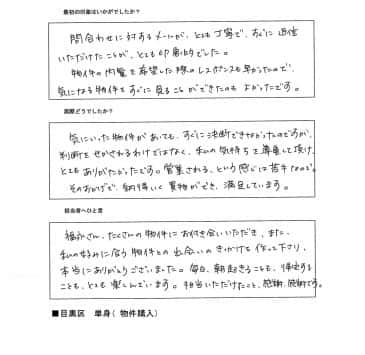 最初の対象はいかがでしたか?
問合わせに対するメールが、とても丁寧で、すぐに返信
いただけたことが、とても印象的でした。
物件の内覧を希望した際のレスポンスも早かったので、
気になる物件をすぐに見ることができたのもよかったです。
実際どうでしたか?
気にいった物件があっても、すぐに決断できなかったのですが、
判断をせかされるわけではなく、私の気持ちを尊重して頂け、
とてもありがたかったです。営業される、という感じは苦手なので。
そのおかげで、納得いく買物ができ、満足しています。
担当者へひと言
福永さん、たくさんの物件にお付き合いいただき、また、
私の好みに合う物件との出会いのきっかけを作って下さり、
本当にありがとうございました。毎日、朝起きることも、帰宅する
ことも、とても楽しんでいます。担当いただけたこと、感謝、感謝です。
■目黒区 単身( 物件購入)